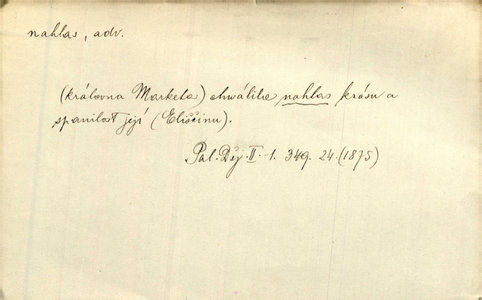 nahlas, adv.
(královna Marketa) chválila nahlas krásu a
spanilost její (Eliščinu).
Pal. Děj. II. 1. 349. 24. (1875)